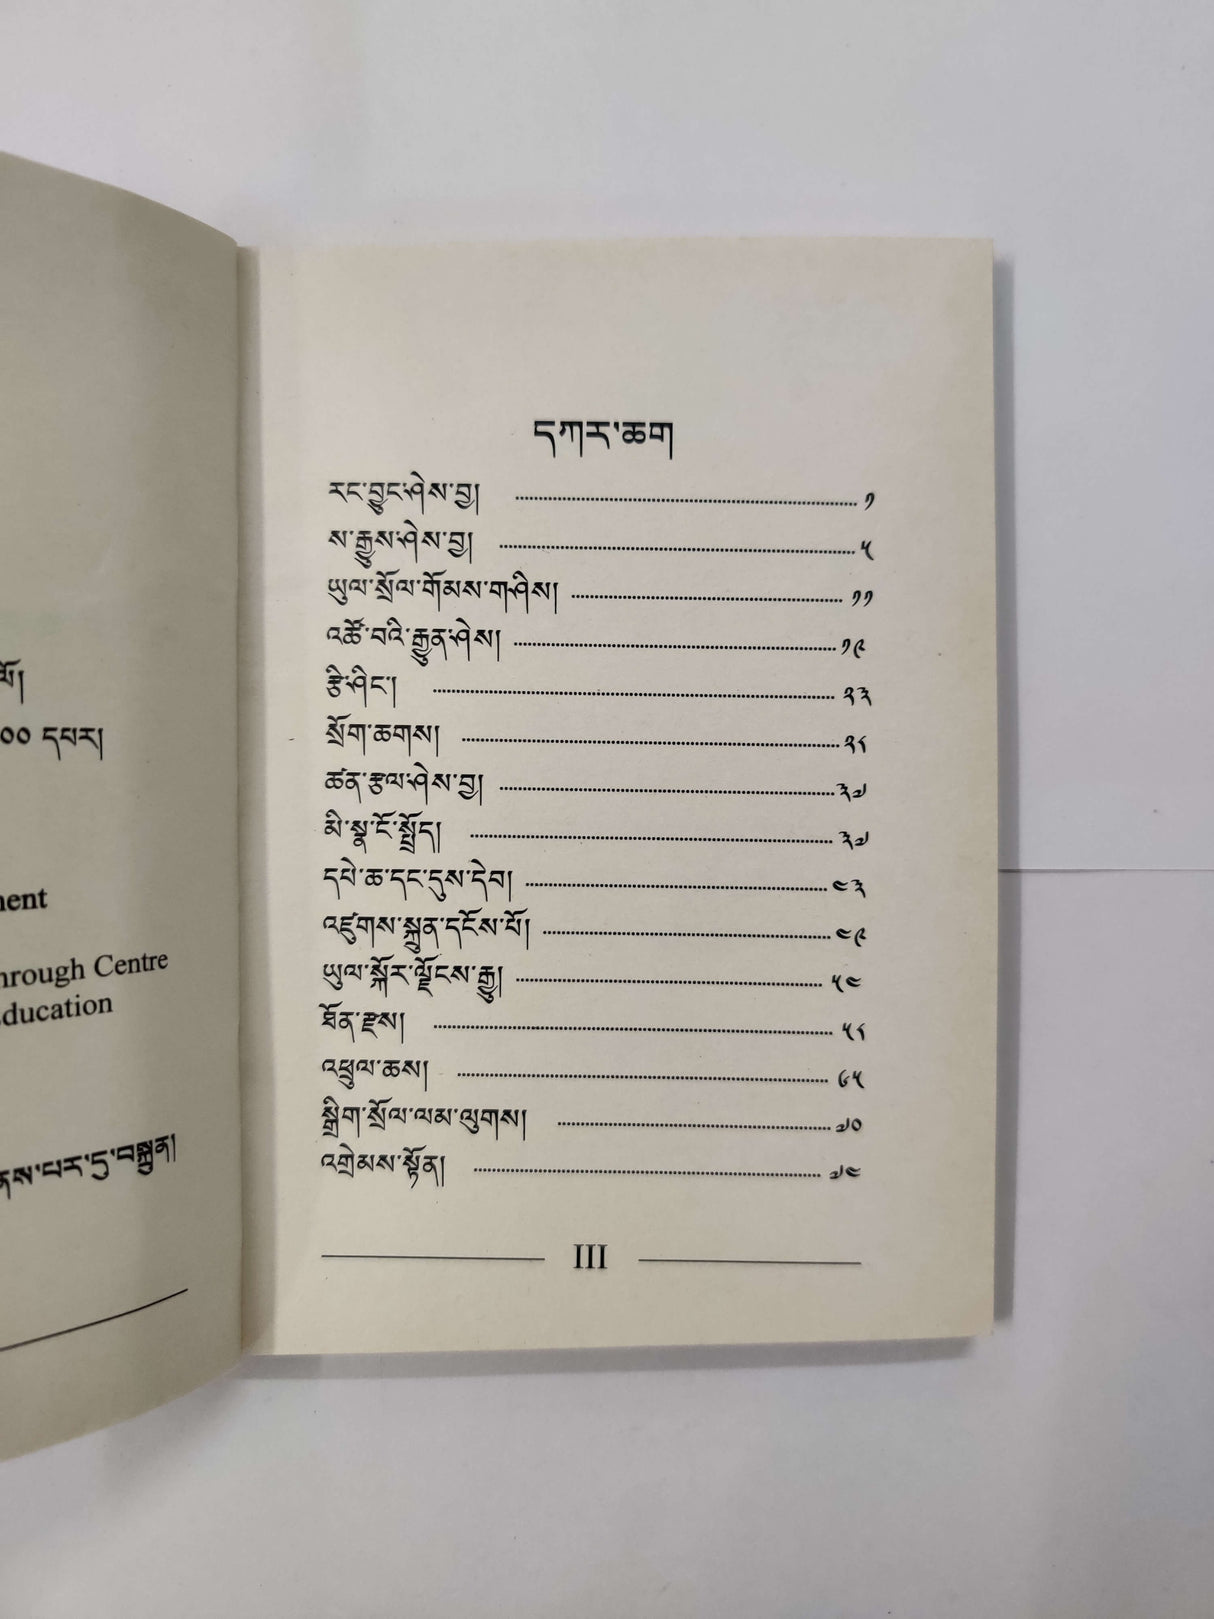 ལོ།
༠༠ དཔར།
ment
hrough Centre
ducation
ནས་པར་དུ་བསྐྲུན།
དཀར་ཆག
རང་བྱུང་ཤེས་བྱ། ༡
ས་རྒྱུས་ཤེས་བྱ། ༥
ཡུལ་སྲོལ་གོམས་གཤིས། ༡༡
འཚོ་བའི་རྒྱུན་ཤེས། ༡༩
རྩི་ཤིང་། ༢༣
སྲོག་ཆགས། ༢༨
ཚན་རྩལ་ཤེས་བྱ། ༣༧
མི་སྣ་ངོ་སྤྲོད། ༣༧
དཔེ་ཆ་དང་དུས་དེབ། ༤༣
འཛུགས་སྐྲུན་དངོས་པོ། ༤༩
ཡུལ་སྐོར་ལྗོངས་རྒྱུ། ༥༤
ཐོན་རྫས། ༥༨
འཕྲུལ་ཆས། ༦༥
སྒྲིག་སྲོལ་ལམ་ལུགས། ༧༠
འགྲེམས་སྟོན། ༧༤
III